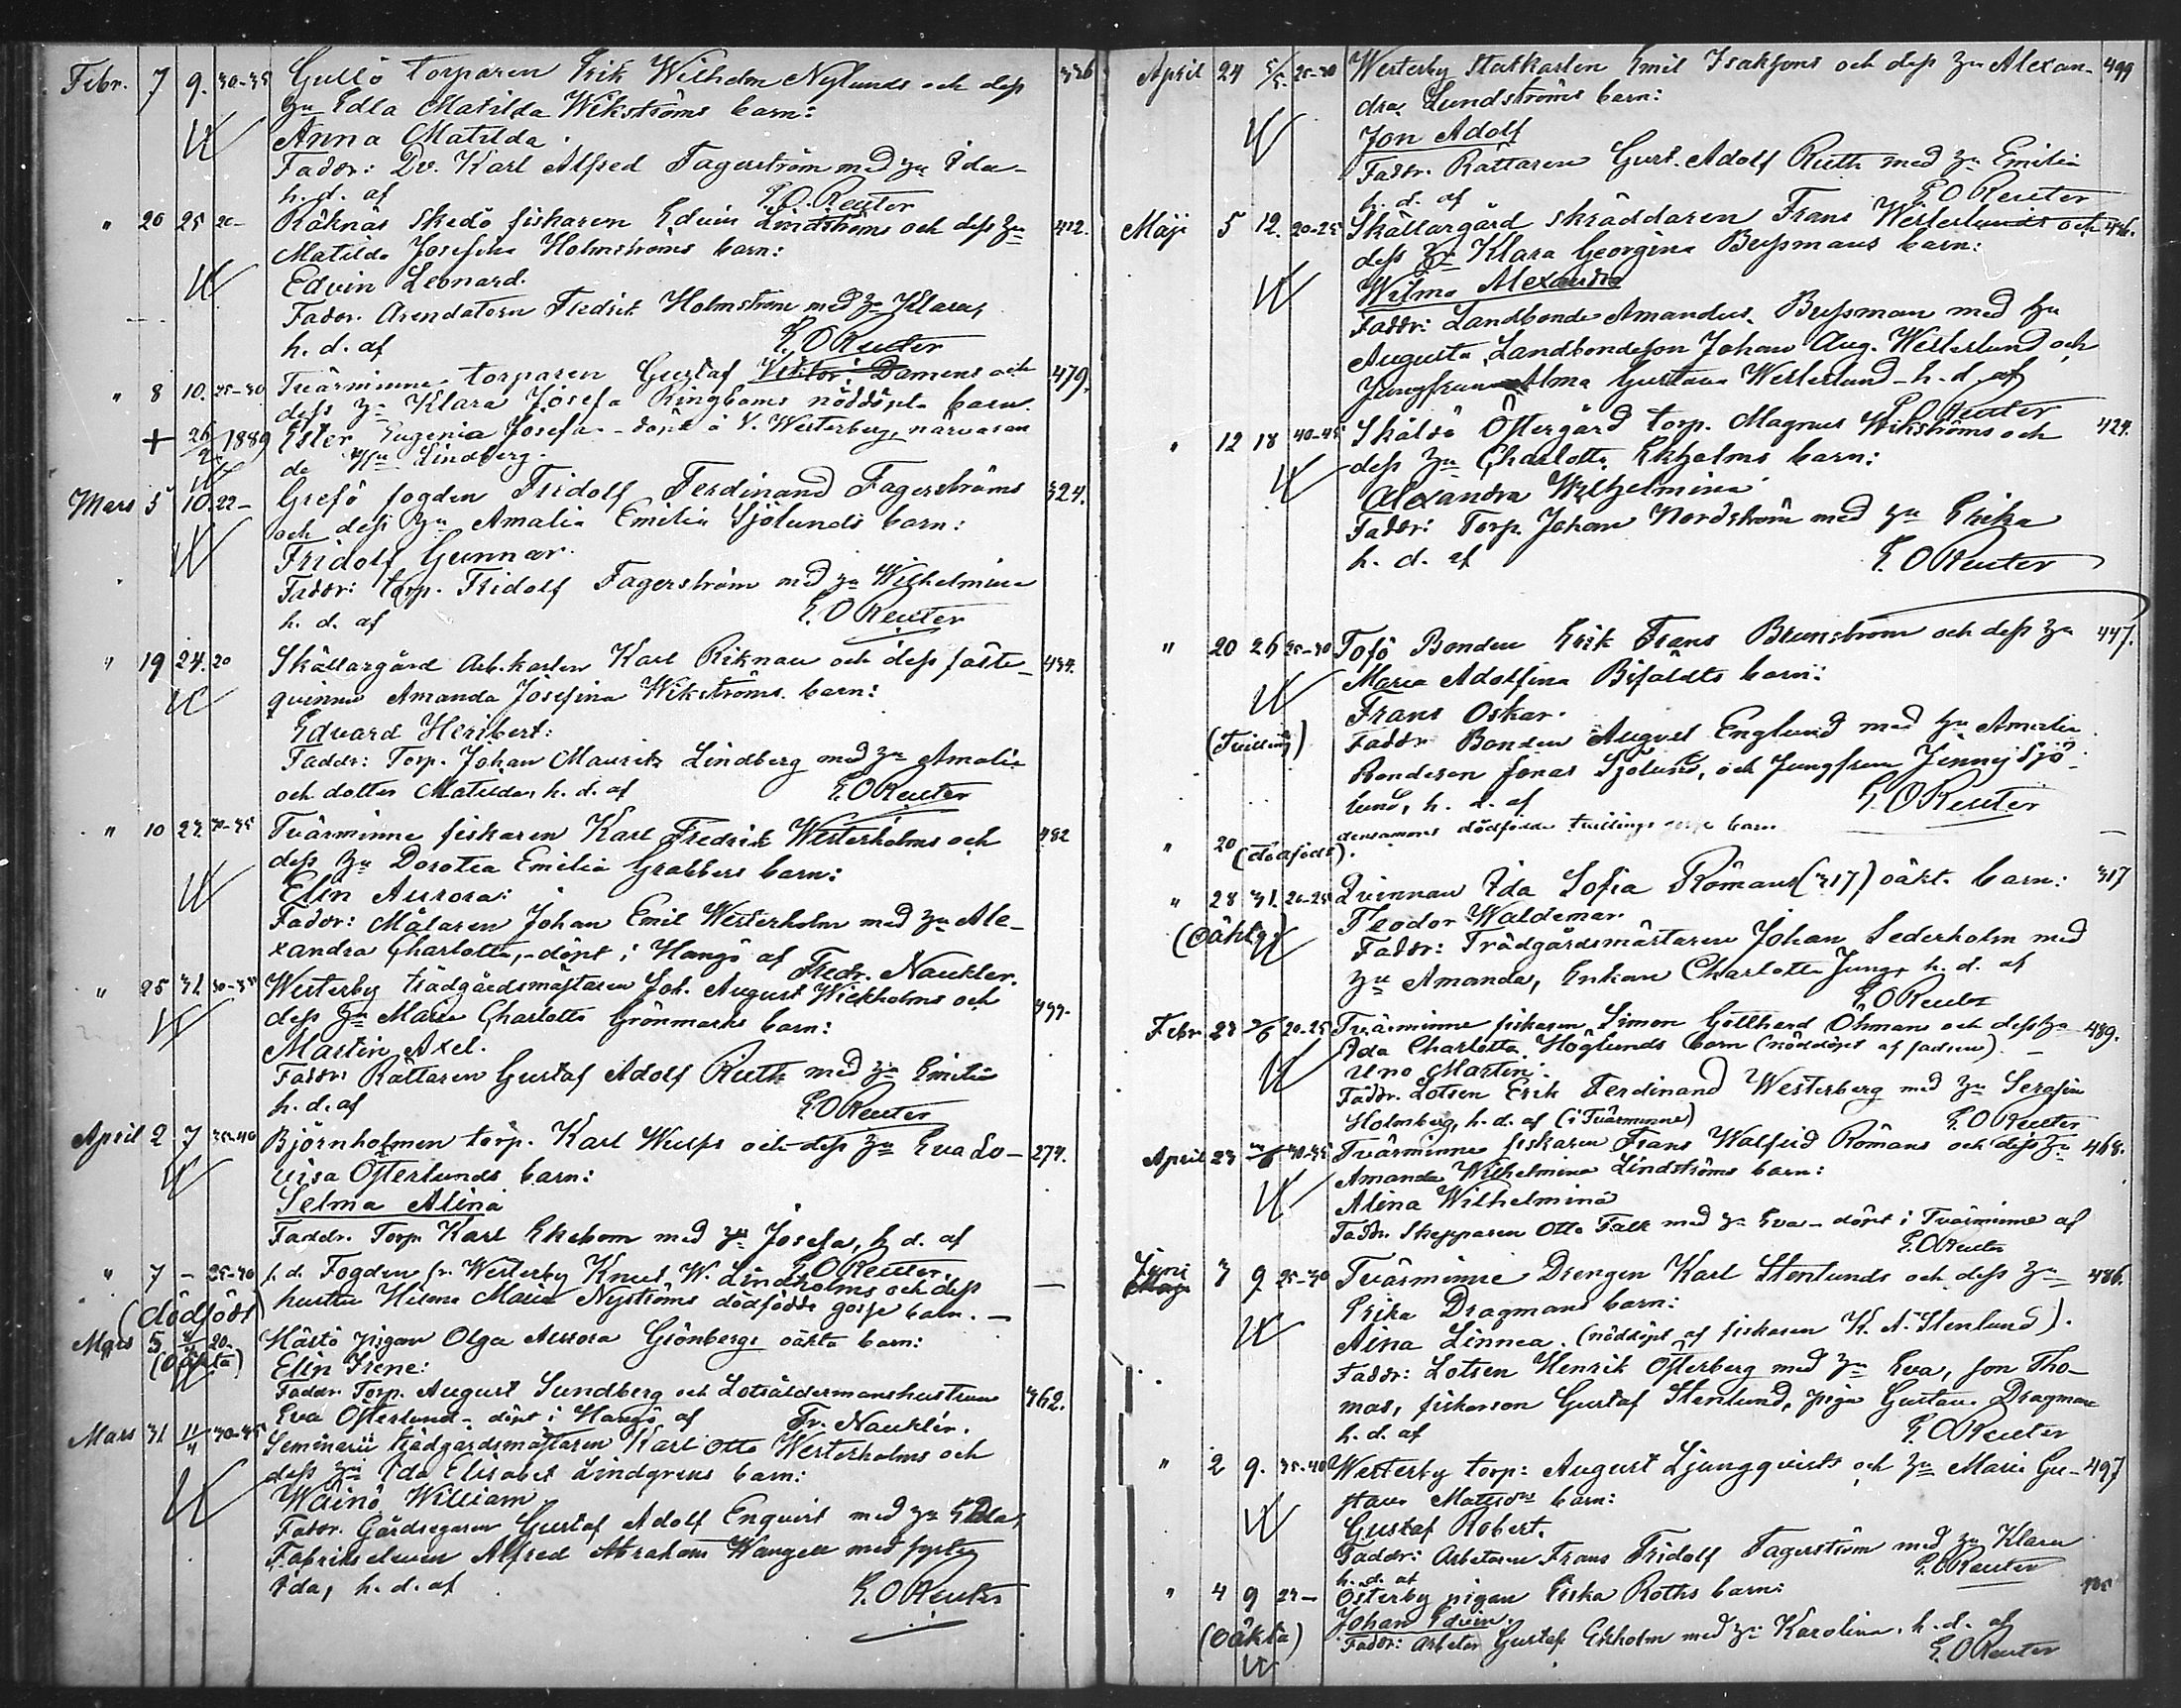 Febr. 7 9. 30-35 Gullö torparen Erik Wilhelm Nylunds och dess 336
hu Edla Matilda Wikströms barn:
Anna Matilda
Faddr: Dr. Karl Alfred Fagerström med hu Ida
h. d. af E. O. Reuter
" 20 25 20- Räknäs Skedö fiskaren Edvin Lindströms och dess hu 412.
Matilda Josefina Holmströms barn:
Edvin Leonard.
Faddr. Arendatorn Fredrik Holmström med hu Klara,
h. d. af E. O Reuter
" 8 10. 25-30 Tvärminne torparen Gustaf Viktor Damens och 479.
dess hu Klara Josefa Ringboms nöddöpta barn.
+ 26/2 1889 Ester Eugenia Josefa - döpt i V. Westerby, närvaran
de Lindberg.
Mars 5 10. 22- Grefö fogden Fridolf Ferdinand Fagerströms 324.
och dess hu Amalia Emilia Sjölunds barn:
Fridolf Gunnar.
Faddr: torp. Fridolf Fagerström med hu Wilhelmina
h. d. af E. O Reuter
" 19 24. 20 Skållargård Arb.karlen Karl Riknau och dess fäste- 434.
qvinna Amanda Josefina Wikströms barn:
Edvard Heribert:
Faddr: Torp. Johan Maurits Lindberg med hu Amalia
och dotter Matilda, h. d. af E. O Reuter
" 10 27. 30-35 Tvärminne fiskaren Karl Fredrik Westerholms och 482
dess hu Dorotea Emilia Grabbers barn:
Elin Aurora:
Faddr: Målaren Johan Emil Westerholm med hu Ale-
xandra Charlotta, - döpt i Hangö af Fredr. Naukler.
" 25 31. 30-35 Westerby trädgårdsmästaren Joh. August Wickholms och 499.
dess hu Maria Charlotta Grönmarks barn:
Martin Axel.
Faddr: Rättaren Gustaf Adolf Ruth med hu Emilia
h. d. af E. O Reuter
April 2 7 35-40 Björnholmen torp. Karl Wulfs och dess hu Eva Lo- 274.
visa Österlunds barn:
Selma Alina
Faddr. Torp. Karl Ekebom med hu Josefa, h. d. af
E O Reuter.
" 7 - 25-30 f. d. Fogden fr. Westerby Knut W. Lindholms och dess —
(dödfödt) hustru Hilma Maria Nyströms dödfödda gosse barn. —
Mars 5 20. Märtö pigan Olga Aurora Grönbergs oäkta barn:
(Oäkta) Elin Irene:
Faddr. Torp. August Sundberg och Lotsåldermanshustrun 362.
Eva Österlund - döpt i Hangö af Fr. Naukler.
Mars 31 11/4 30-35 Seminarii trädgårdsmästaren Karl Otto Westerholms och
dess hu Ida Elisabet Lindgrens barn:
Wäinö William
Faddr. Gårdsegaren Gustaf Adolf Enqvist med hu Edla,
Fabrikseleven Alfred Abraham Wangel med syster
Ida, h. d. af E. O Reuter
April 24 5/5. 25-30 Westerby Statkarlen Emil Isaksons och dess hu Alexan- 499
dra Lundströms barn:
Jon Adolf
Faddr. Rättaren Gust. Adolf Ruth med hu Emilia
h. d. af E. O Reuter
Maji 5 12. 20-25 Skållargård skräddaren Frans Westerlunds och 436.
dess hu Klara Georgina Bussmans barn:
Wilma Alexandra
Faddr: Landbonde Amandus Bussman med hu
Augusta, Landbondeson Johan Aug. Westerlund och
Jungfrun Alma Gustava Westerlund - h. d. af
E O Reuter
" 12 18 40-45 Skåldö Östergård torp. Magnus Wikströms och 424.
dess hu Charlotta Ekholms barn:
Alexandra Wilhelmina
Faddr: Torp. Johan Nordström med hu Erika
h. d. af E. O Reuter
" 20 26 25-30 Tofö Bonden Erik Frans Brunström och dess hu 447.
Maria Adolfina Bifäldts barn:
Frans Oskar.
(Tvilling) Faddr Bonden August Englund med hu Amalia
Bondeson Jonas Sjölund, och Jungfrun Jenny Sjö-
lund, h. d. af E. O Reuter
" 20 (dödfödt). densammas dödfödda tvillings gosse barn —
" 28 31. 20-25 Qvinnan Ida Sofia Römans (317) oäkt. barn: 317
(Oäkta) Teodor Waldemar
Faddr: Trädgårdsmästaren Johan Sederholm med
hu Amanda, Enkan Charlotta Jung, h. d. af
E O Reuter
Febr. 23 2/6 20-25 Tvärminne fiskaren Simon Gotthard Öhmans och dess hu 489.
Ida Charlotta Höglunds barn (nöddöpt af fadren) —
Uno Martin.
Faddr. Lotsen Erik Ferdinand Westerberg med hu Serafia
Holmberg, h. d. af (i Tvärminne) E. O Reuter
April 23 30-35 Tvärminne fiskaren Frans Walfrid Römans och dess hu 468.
Amanda Wilhelmina Lindströms barn:
Alina Wilhelmina
Faddr. Skepparen Otto Falk med hu Eva - döpt i Tvärminne af
E. O Reuter
Juni 3 9 25-30 Tvärminne Drengen Karl Stenlunds och dess hu 486.
Maji Erika Dragmans barn:
Aina Linnea. (nöddöpt af fiskaren K. A. Stenlund).
Faddr: Lotsen Henrik Österberg med hu Eva, son Tho-
mas, fiskarson Gustaf Stenlund, piga Gustava Dragman
h. d. af E. O Reuter
" 2 9. 35-40 Westerby torp: August Ljungqvists och hu Maria Gu- 497
stava Mattsdrs barn:
Gustaf Robert.
Faddr: Arbetaren Frans Fridolf Fagerström med hu Klara
h. d. af E. O Reuter
" 4 9 24- Österby pigan Erika Roths barn:
(Oäkta) Johan Edvin.
Faddr: Arbetar Gustaf Ekholm med hu Karolina. h. d. af
E. O Reuter